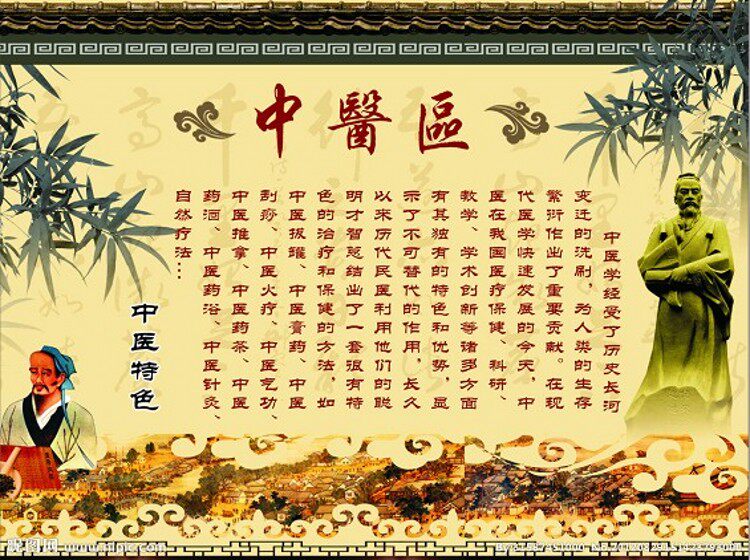 中醫區
中医学经受了历史长河
变迁的洗刷，为人类的生存
繁衍作出了重要贡献。在现
代医学快速发展的今天，中
医在我国医疗保健、科研、
教学、学术创新等诸多方面
有其独有的特色和优势，显
示了不可替代的作用。长久
以来历代民医利用他们的聪
明才智总结出了一套很有特
色的治疗和保健的方法，如
中医拔罐、中医膏药、中医
刮痧、中医火疗、中医气功、
中医推拿、中医药茶、中医
药酒、中医药浴、中医针灸、
自然疗法…
中医特色
昵图网 www.nipic.com